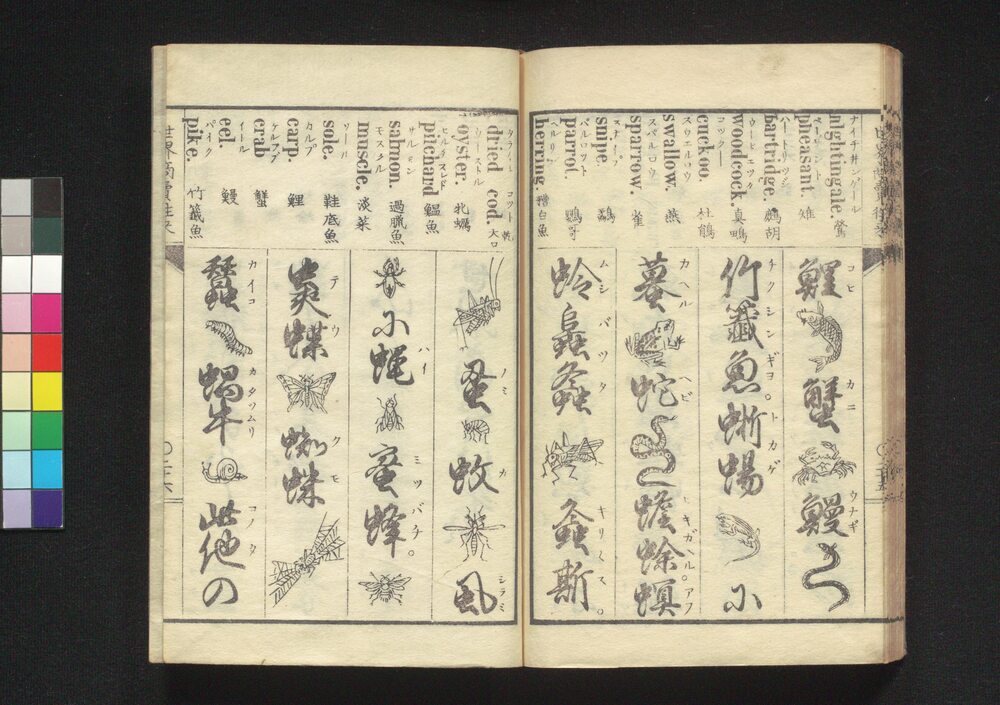 ナイチ井ンゲール
nightingale. 鶯
pheasant. 雉
ハートリッジ
partridge. 鷓胡
ウードコック
woodcock. 真鴫
コック—
cuckoo. 杜鵑
スウエルロウ
swallow. 燕
スパルロウ
sparrow. 雀
スナイプ
snipe. 鷸
パルロット
parrot. 鸚哥
ヘルリング
herring. 糟白魚
鯉 コヒ
蟹 カニ
鰻 ウナギ
竹籤魚 チクシンギヨ。
蜥蜴 トカゲ
小
蟇 カヘル
蛇 ヘビ
蟾蜍 ヒキガヘル。
蛉 ムシ
螽斯 キリ〱ス。
dried cod. 大口
ウーストル
oyster. 牝蠣
pilchard 鰛魚
サルモン
salmon. 過臘魚
モスクル
muscle. 淡菜
ソール
sole. 鞋底魚
カルプ
carp. 鯉
ケルアブ
crab 蟹
イール
eel. 鰻
パイク
pike. 竹籤魚
蚤 ノミ
蚊 カ
虱 シラミ
小蝿 ハイ
蜜蜂 ミツバチ。
蝶 テウ
蜘蛛 クモ
蚕 カイコ
蝸牛 カタツムリ
此他の コノタ